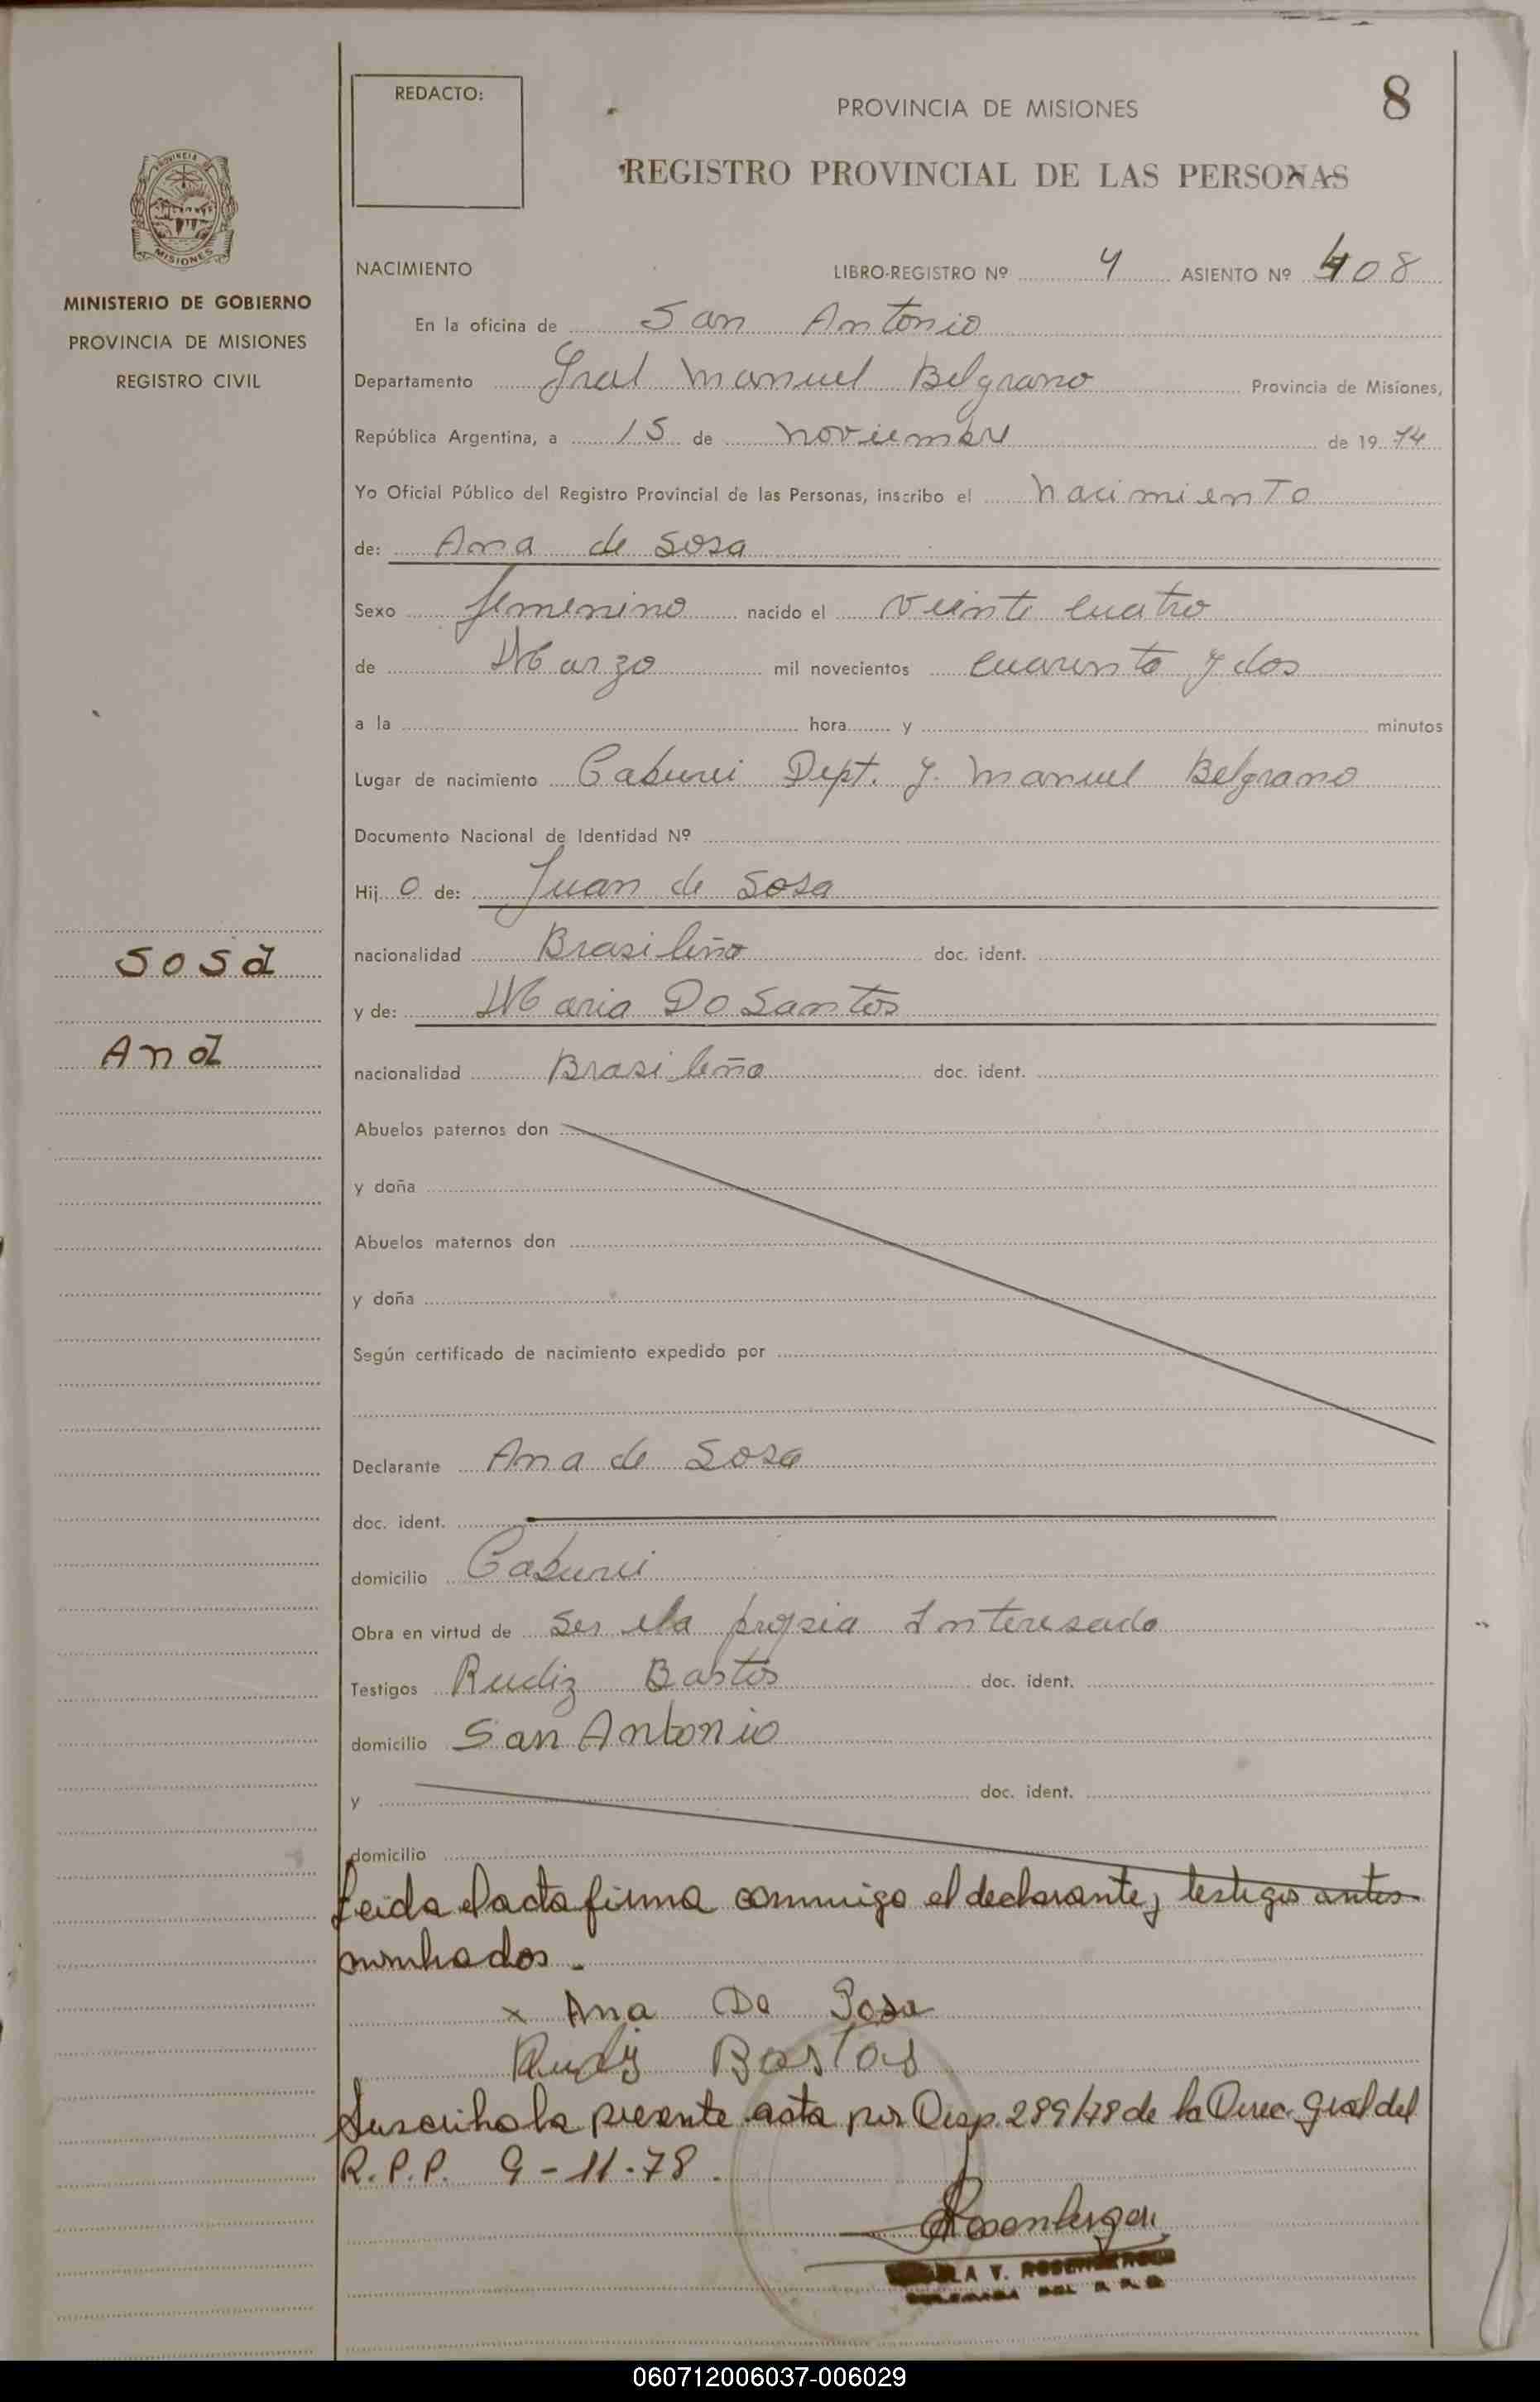 REDACTO:
PROVINCIA DE MISIONES
8
REGISTRO PROVINCIAL DE LAS PERSONAS
PROVINCIA DE
MISIONES
MINISTERIO DE GOBIERNO
PROVINCIA DE MISIONES
REGISTRO CIVIL
NACIMIENTO LIBRO-REGISTRO Nº 4 ASIENTO Nº 408
En la oficina de San Antonio
Departamento Gral Manuel Belgrano Provincia de Misiones,
República Argentina, a 15 de noviembre de 19 74
Yo Oficial Público del Registro Provincial de las Personas, inscribo el nacimiento
de: Ana de Sosa
Sexo femenino nacido el veinte cuatro
de Marzo mil novecientos cuarenta y dos
a la hora y minutos
Lugar de nacimiento Caburei Dept. g. Manuel Belgrano
Documento Nacional de Identidad Nº
Hij o de: Juan de Sosa
nacionalidad Brasileño doc. ident.
y de: Maria Do Santos
nacionalidad Brasileña doc. ident.
Sosa
Ana
Abuelos paternos don
y doña
Abuelos maternos don
y doña
Según certificado de nacimiento expedido por
Declarante Ana de Sosa
doc. ident.
domicilio Caburei
Obra en virtud de ser ela propia Interesada
Testigos Rudiz Bastos doc. ident.
domicilio San Antonio
y doc. ident.
domicilio
Leida el acta firma conmigo el declarante y testigos antes
nombrados.-
x Ana De Sosa
Rudiz Bastos
Suscribo la presente acta por Disp. 289/78 de la Direc. Gral del
R.P.P. 9-11-78.
Rosenberger
LA V. ROSENBERGER
DEL R.P.P.
060712006037-006029